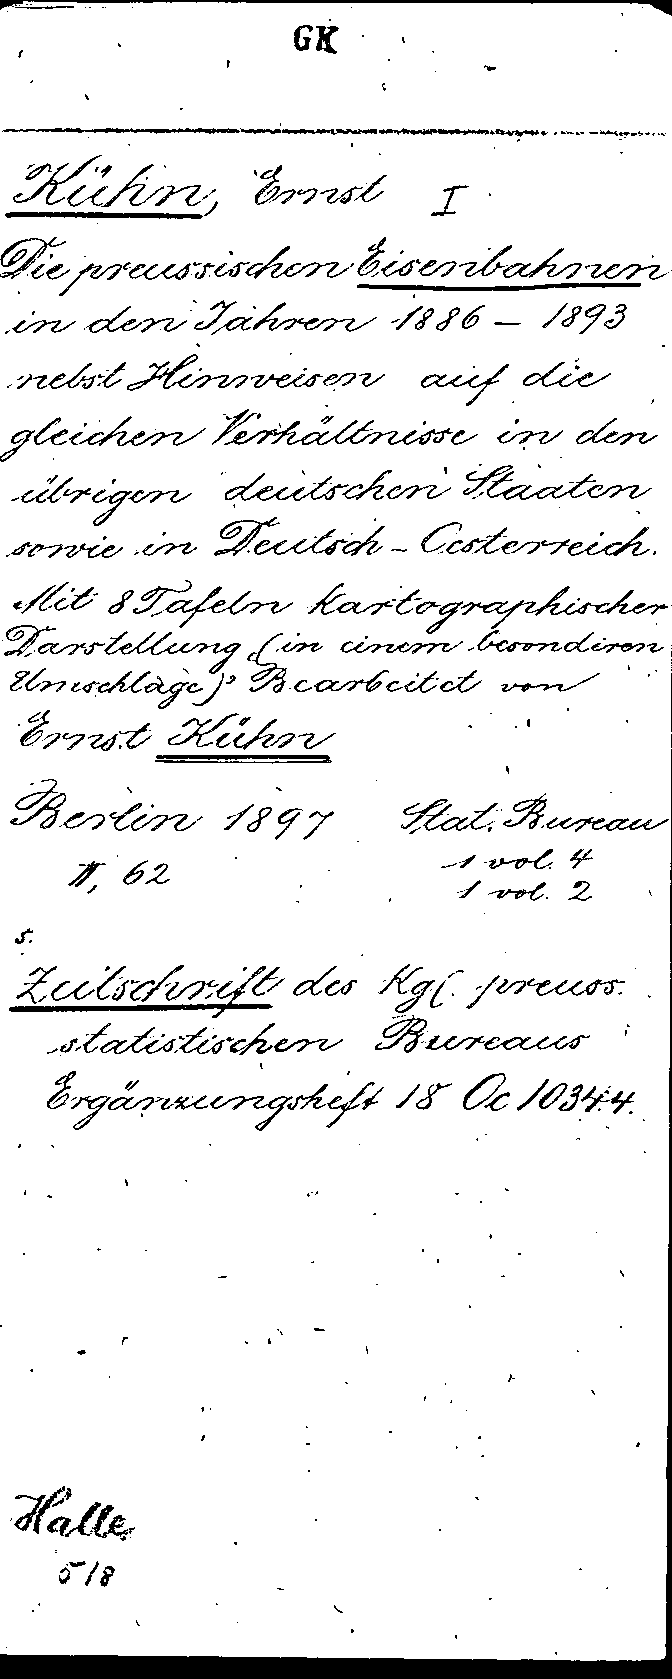 GK
Kühn, Ernst I
Die preussischen Eisenbahnen
in den Jahren 1886 – 1893
nebst Hinweisen auf die
gleichen Verhältnisse in den
übrigen deutschen Staaten
sowie in Deutsch-Oesterreich.
Mit 8 Tafeln kartographischer
Darstellung (in einem besonderen
Umschlage). Bearbeitet von
Ernst Kühn
Berlin 1897 Stat. Bureau
II, 62 1 vol. 4
1 vol. 2
s.
Zeitschrift des Kgl. preuss.
statistischen Bureaus
Ergänzungsheft 18 Oc 10344.
Halle
518